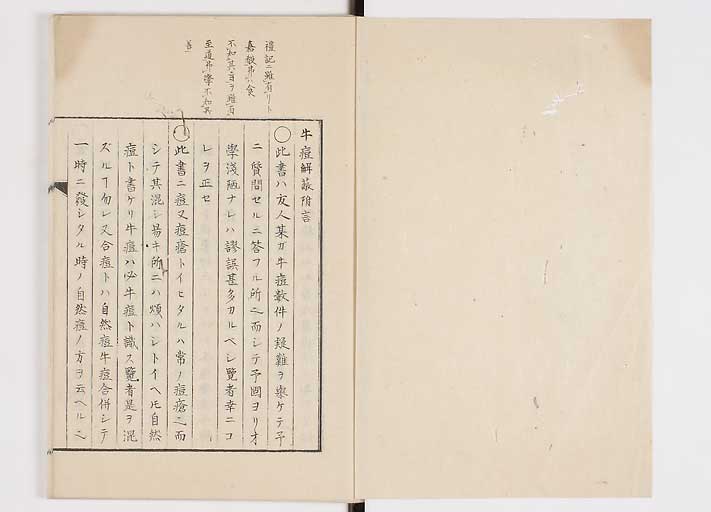 禮記ニ雖有リト
嘉殽弗レハ食
不知其旨ヲ雖有
至道弗學不知其
善
牛痘鮮蔀附言
〇此書ハ友人某ガ牛痘數件ノ疑難ヲ擧ケテ予
ニ質問セルニ答フル所ニ而シテ予固ヨリ才
學淺陋ナレハ謬誤甚多カルベシ覽者幸ニコ
レヲ正セ
〇此書ニ痘又痘瘡トイヒタルハ常ノ痘瘡也而
シテ其混シ易キ所ニハ煩ハシトイヘ𪜈自然
痘ト書ケリ牛痘ハ必牛痘ト識ス覽者是ヲ混
ズルヿ勿レ又合痘トハ自然痘牛痘合併シテ
一時ニ發シタル時ノ自然痘ノ方ヲ云ヘル也